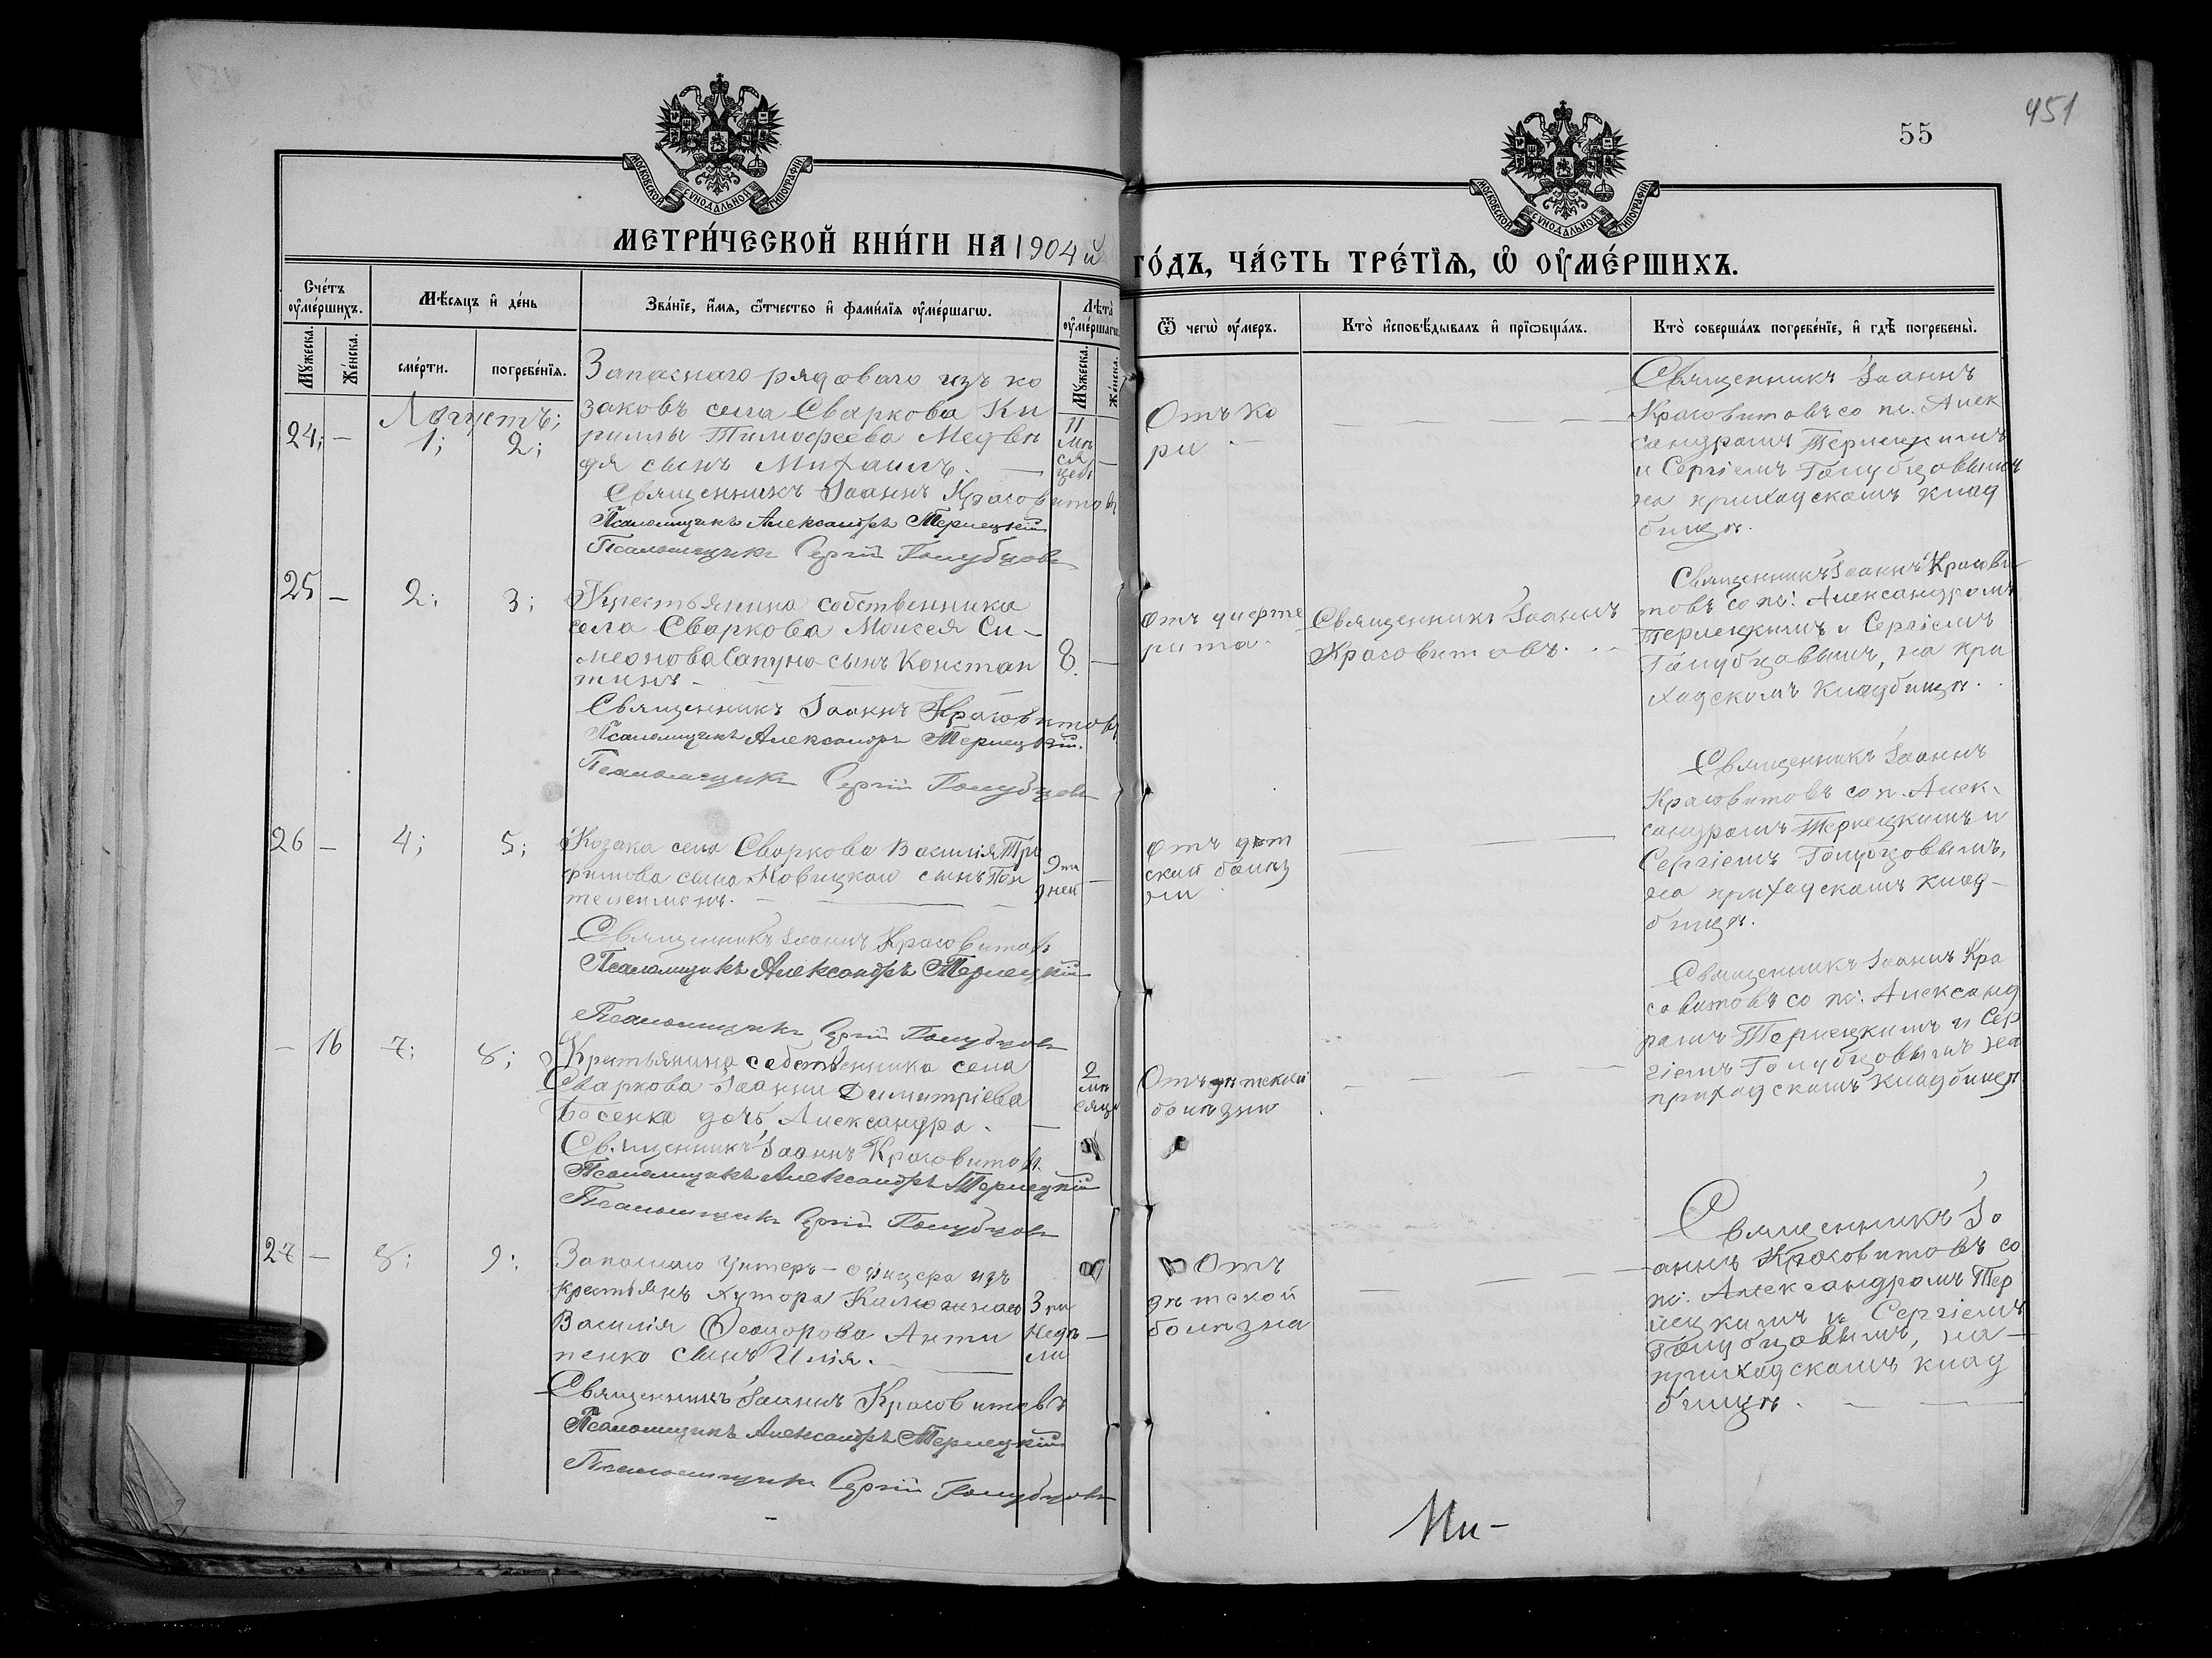 451
55
МОСКОВСКОЙ СѴНОДАЛЬНОЙ ТИПОГРАФІИ
МОСКОВСКОЙ СѴНОДАЛЬНОЙ ТИПОГРАФІИ
МЕТРИ́ЧЕСКОЙ КНИ́ГИ НА 1904 й
ГО́ДЪ, ЧА́СТЬ ТРЕ́ТІѦ, Ѡ ОУ҆МЕ́РШИХЪ.
Сче́тъ оу҆ме́ршихъ.
Мѣ́сяцъ и҆ де́нь
Зва́ніе, и҆́мя, ѻ҆́тчество и҆ фами́лія оу҆ме́ршагѡ.
Лѣ́та оу҆ме́ршагѡ
Му́жеска.
Же́нска.
сме́рти.
погребе́нія.
Му́жеска.
Же́нска.
Ѿ чегѡ̀ оу҆́меръ.
Кто̀ и҆сповѣ́дывалъ и҆ прїѡбща́лъ.
Кто̀ соверша́лъ погребе́ніе, и҆ гдѣ̀ погребены̀.
Августъ;
24; — 1; 2;
Запаснаго рядоваго изъ ко
заковъ села Сваркова Ки
риллы Тимофеева Медвѣ
дя сынъ Михаилъ. —
11
мѣ
ся
цевъ
Священникъ Іоаннъ Красовитовъ
Псаломщикъ Александръ Терлецкій
Псаломщикъ Сергій Голубцовъ
Отъ ко
ри —
Священникъ Іоаннъ
Красовитовъ со пс. Алек
сандромъ Терлецкимъ
и Сергіемъ Голубцовымъ
на приходскомъ клад
бищѣ.
25 — 2; 3;
Крестьянина собственника
села Сваркова Моисея Си-
меонова Сапуна сынъ Констан
тинъ —
8. —
Священникъ Іоаннъ Красовитовъ
Псаломщикъ Александръ Терлецкій.
Псаломщикъ Сергій Голубцовъ
Отъ дифте
рита.
Священникъ Іоаннъ
Красовитовъ.
Священникъ Іоаннъ Красови
товъ со пс. Александромъ
Терлецкимъ и Сергіемъ
Голубцовымъ, на при
ходскомъ кладбищѣ.
26 — 4; 5;
Козака села Сваркова Василія Тро
фимова сына Новицкаго сынъ Пан
телеимонъ. —
9ти
дней
Священникъ Іоаннъ Красовитовъ
Псаломщикъ Александръ Терлецкій
Псаломщикъ Сергій Голубцовъ
Отъ дѣт
ской болѣз
ни
Священникъ Іоаннъ
Красовитовъ со п. Алек-
сандромъ Терлецкимъ и
Сергіемъ Голубцовымъ,
на приходскомъ клад-
бищѣ.
— 16 7; 8;
Крестьянина собственника села
Сваркова Іоанна Димитріева
Босенко дочь Александра.
2
мѣ
сяца
Священникъ Іоаннъ Красовитовъ.
Псаломщикъ Александръ Терлецкій
Псаломщикъ Сергій Голубцовъ
Отъ дѣтской
болѣзни
Священникъ Іоаннъ Кра
совитовъ со пс. Александ
ромъ Терлецкимъ и Сер
гіемъ Голубцовымъ на
приходскомъ кладбищѣ
27 — 8; 9;
Запаснаго унтеръ-офицера изъ
крестьянъ хутора
Василія Ѳеодорова Анти
пенко сынъ Илія.
3 хъ
недѣ
ли
Священникъ Іоаннъ Красовитовъ
Псаломщикъ Александръ Терлецкій
Псаломщикъ Сергій Голубцовъ
Отъ
дѣтской
болѣзна
Священникъ Іо
аннъ Красовитовъ со
пс. Александромъ Тер
лецкимъ и Сергіемъ
Голубцовымъ, на
приходскомъ клад
бищѣ.